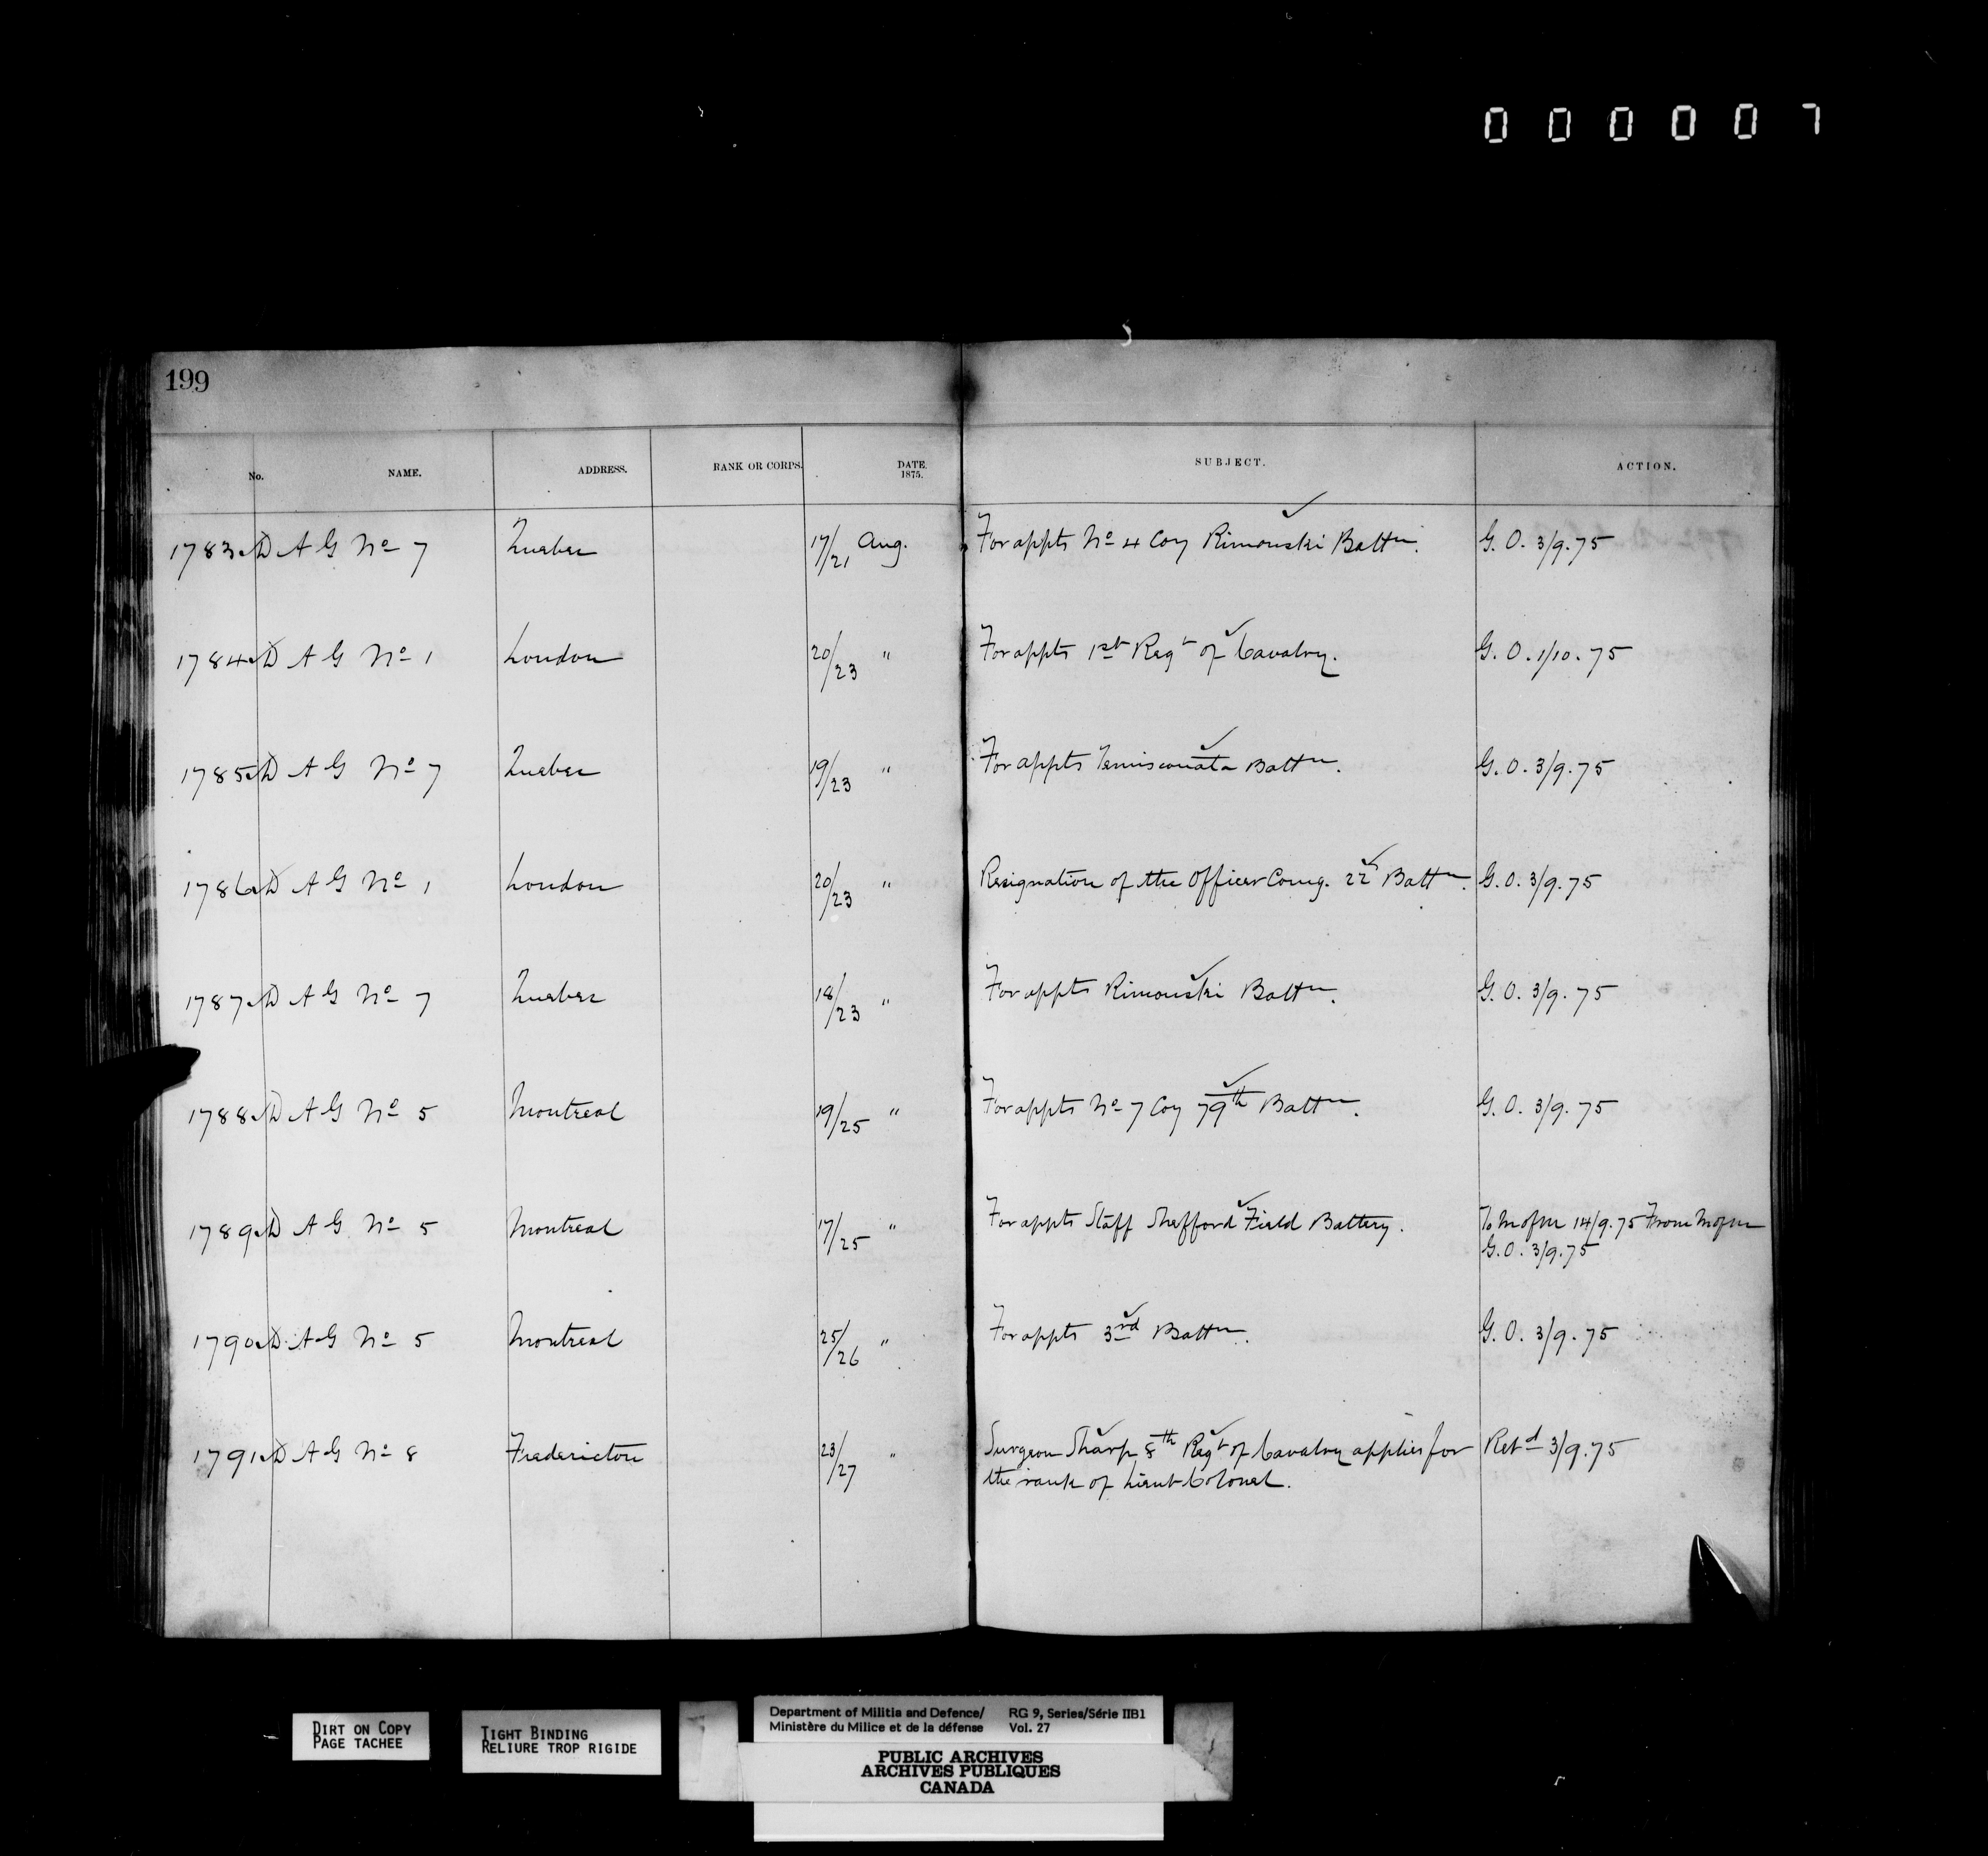 000007
199
No. NAME. ADDRESS. RANK OR CORPS. DATE. 1875. SUBJECT. ACTION.
1783 D A G No 7 Quebec 17/21 Aug. For appts No 4 Coy Rimouski Battn. G. O. 3/9.75
1784 D A G No 1 London 20/23 " For appts 1st Regt of Cavalry. G. O. 1/10.75
1785 D A G No 7 Quebec 19/23 " For appts Temiscouata Battn. G. O. 3/9.75
1786 D A G No 1 London 20/23 " Resignation of the Officer Comg. 22d Battn. G. O. 3/9.75
1787 D A G No 7 Quebec 18/23 " For appts Rimouski Battn. G. O. 3/9.75
1788 D A G No 5 Montreal 19/25 " For appts No 7 Coy 79th Battn. G. O. 3/9.75
1789 D A G No 5 Montreal 17/25 " For appts Staff Shefford Field Battery. To M of M 14/9.75 From M of M
G. O. 3/9.75
1790 D A G No 5 Montreal 25/26 " For appts 3rd Battn. G. O. 3/9.75
1791 D A G No 8 Fredericton 23/27 " Surgeon Sharp 8th Regt of Cavalry applies for Retd 3/9.75
the rank of Lieut Colonel.
DIRT ON COPY
PAGE TACHEE
TIGHT BINDING
RELIURE TROP RIGIDE
Department of Militia and Defence/ RG 9, Series/Série IIB1
Ministère du Milice et de la défense Vol. 27
PUBLIC ARCHIVES
ARCHIVES PUBLIQUES
CANADA